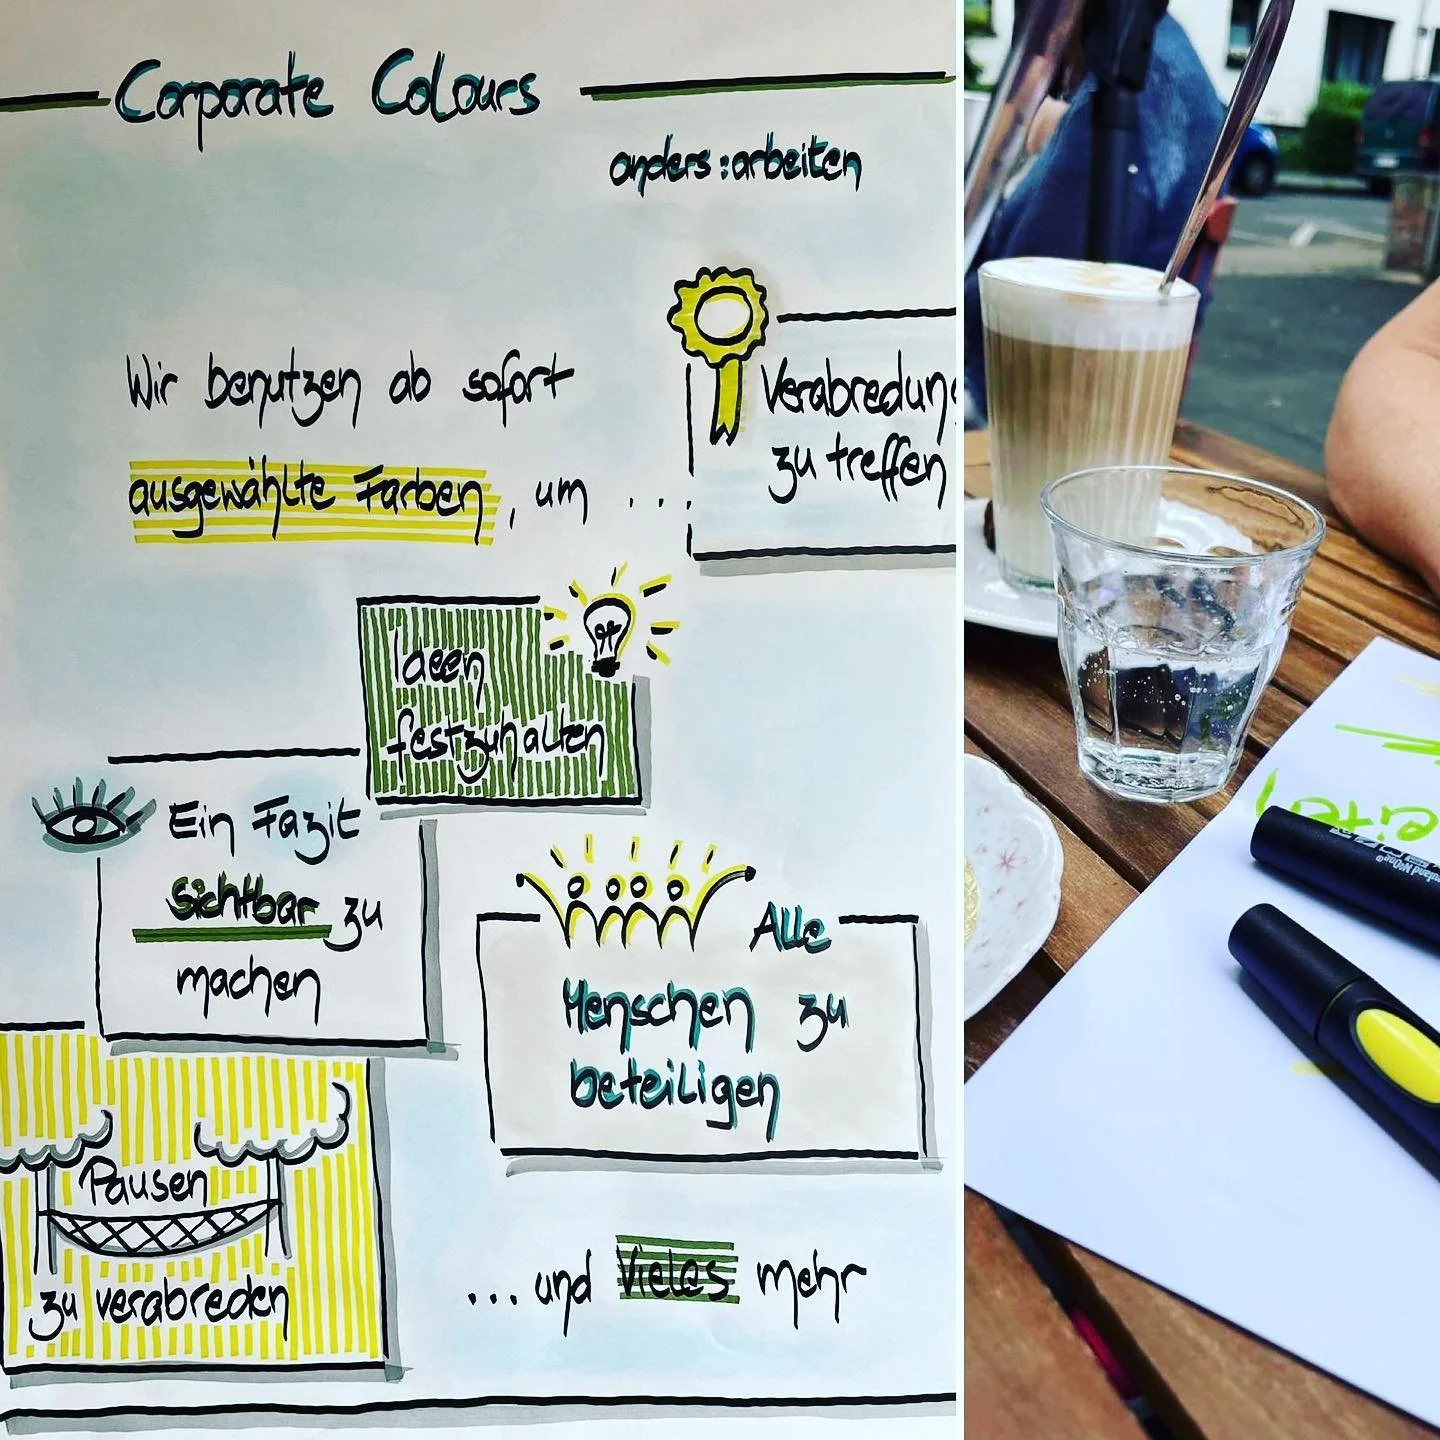 Corporate Colours
anders:arbeiten
Wir benutzen ab sofort
ausgewählte Farben, um ...
Verabredung
zu treffen
Ideen
festzuhalten
Ein Fazit
sichtbar zu
machen
Alle
Menschen zu
beteiligen
Pausen
zu verabreden
...und Vieles mehr
eiten